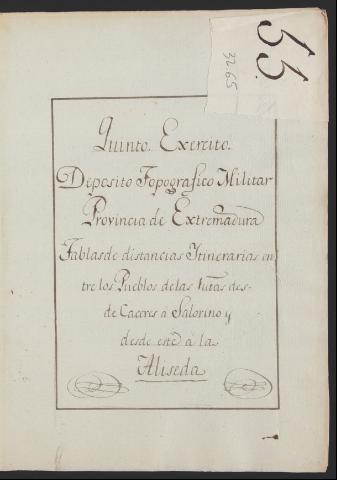 55.
3265
Quinto. Exercito.
Deposito Topografico Militar
Provincia de Extremadura
Tablas de distancias Itinerarias en
tre los Pueblos de las rutas des-
de Caceres á Salorino y
desde este á la
Aliseda